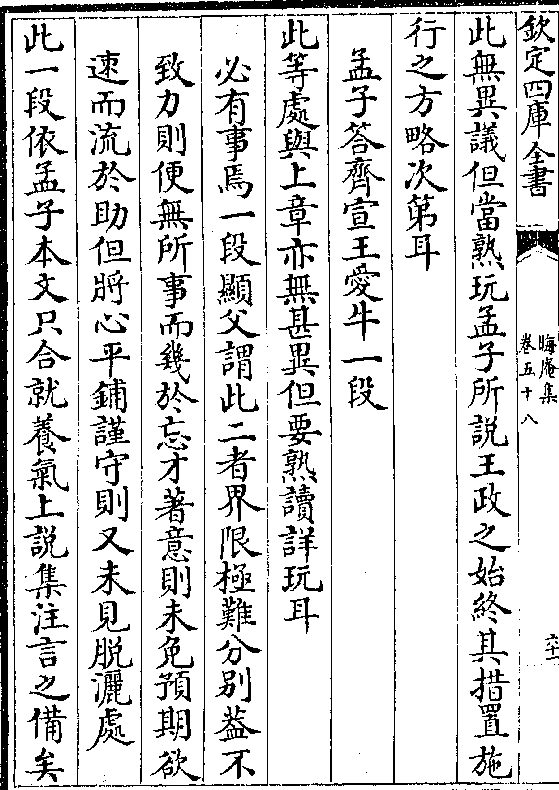 欽定四庫全書
晦庵集
卷五十八
六十一
此無異議但當熟玩孟子所說王政之始終其措置施
行之方略次第耳
孟子答齊宣王愛牛一段
此等處與上章亦無甚異但要熟讀詳玩耳
必有事焉一段顯父謂此二者界限極難分別葢不
致力則便無所事而幾於忘才著意則未免預期欲
速而流於助但將心平鋪謹守則又未見脱灑處
此一段依孟子本文只合就養氣上說集注言之備矣